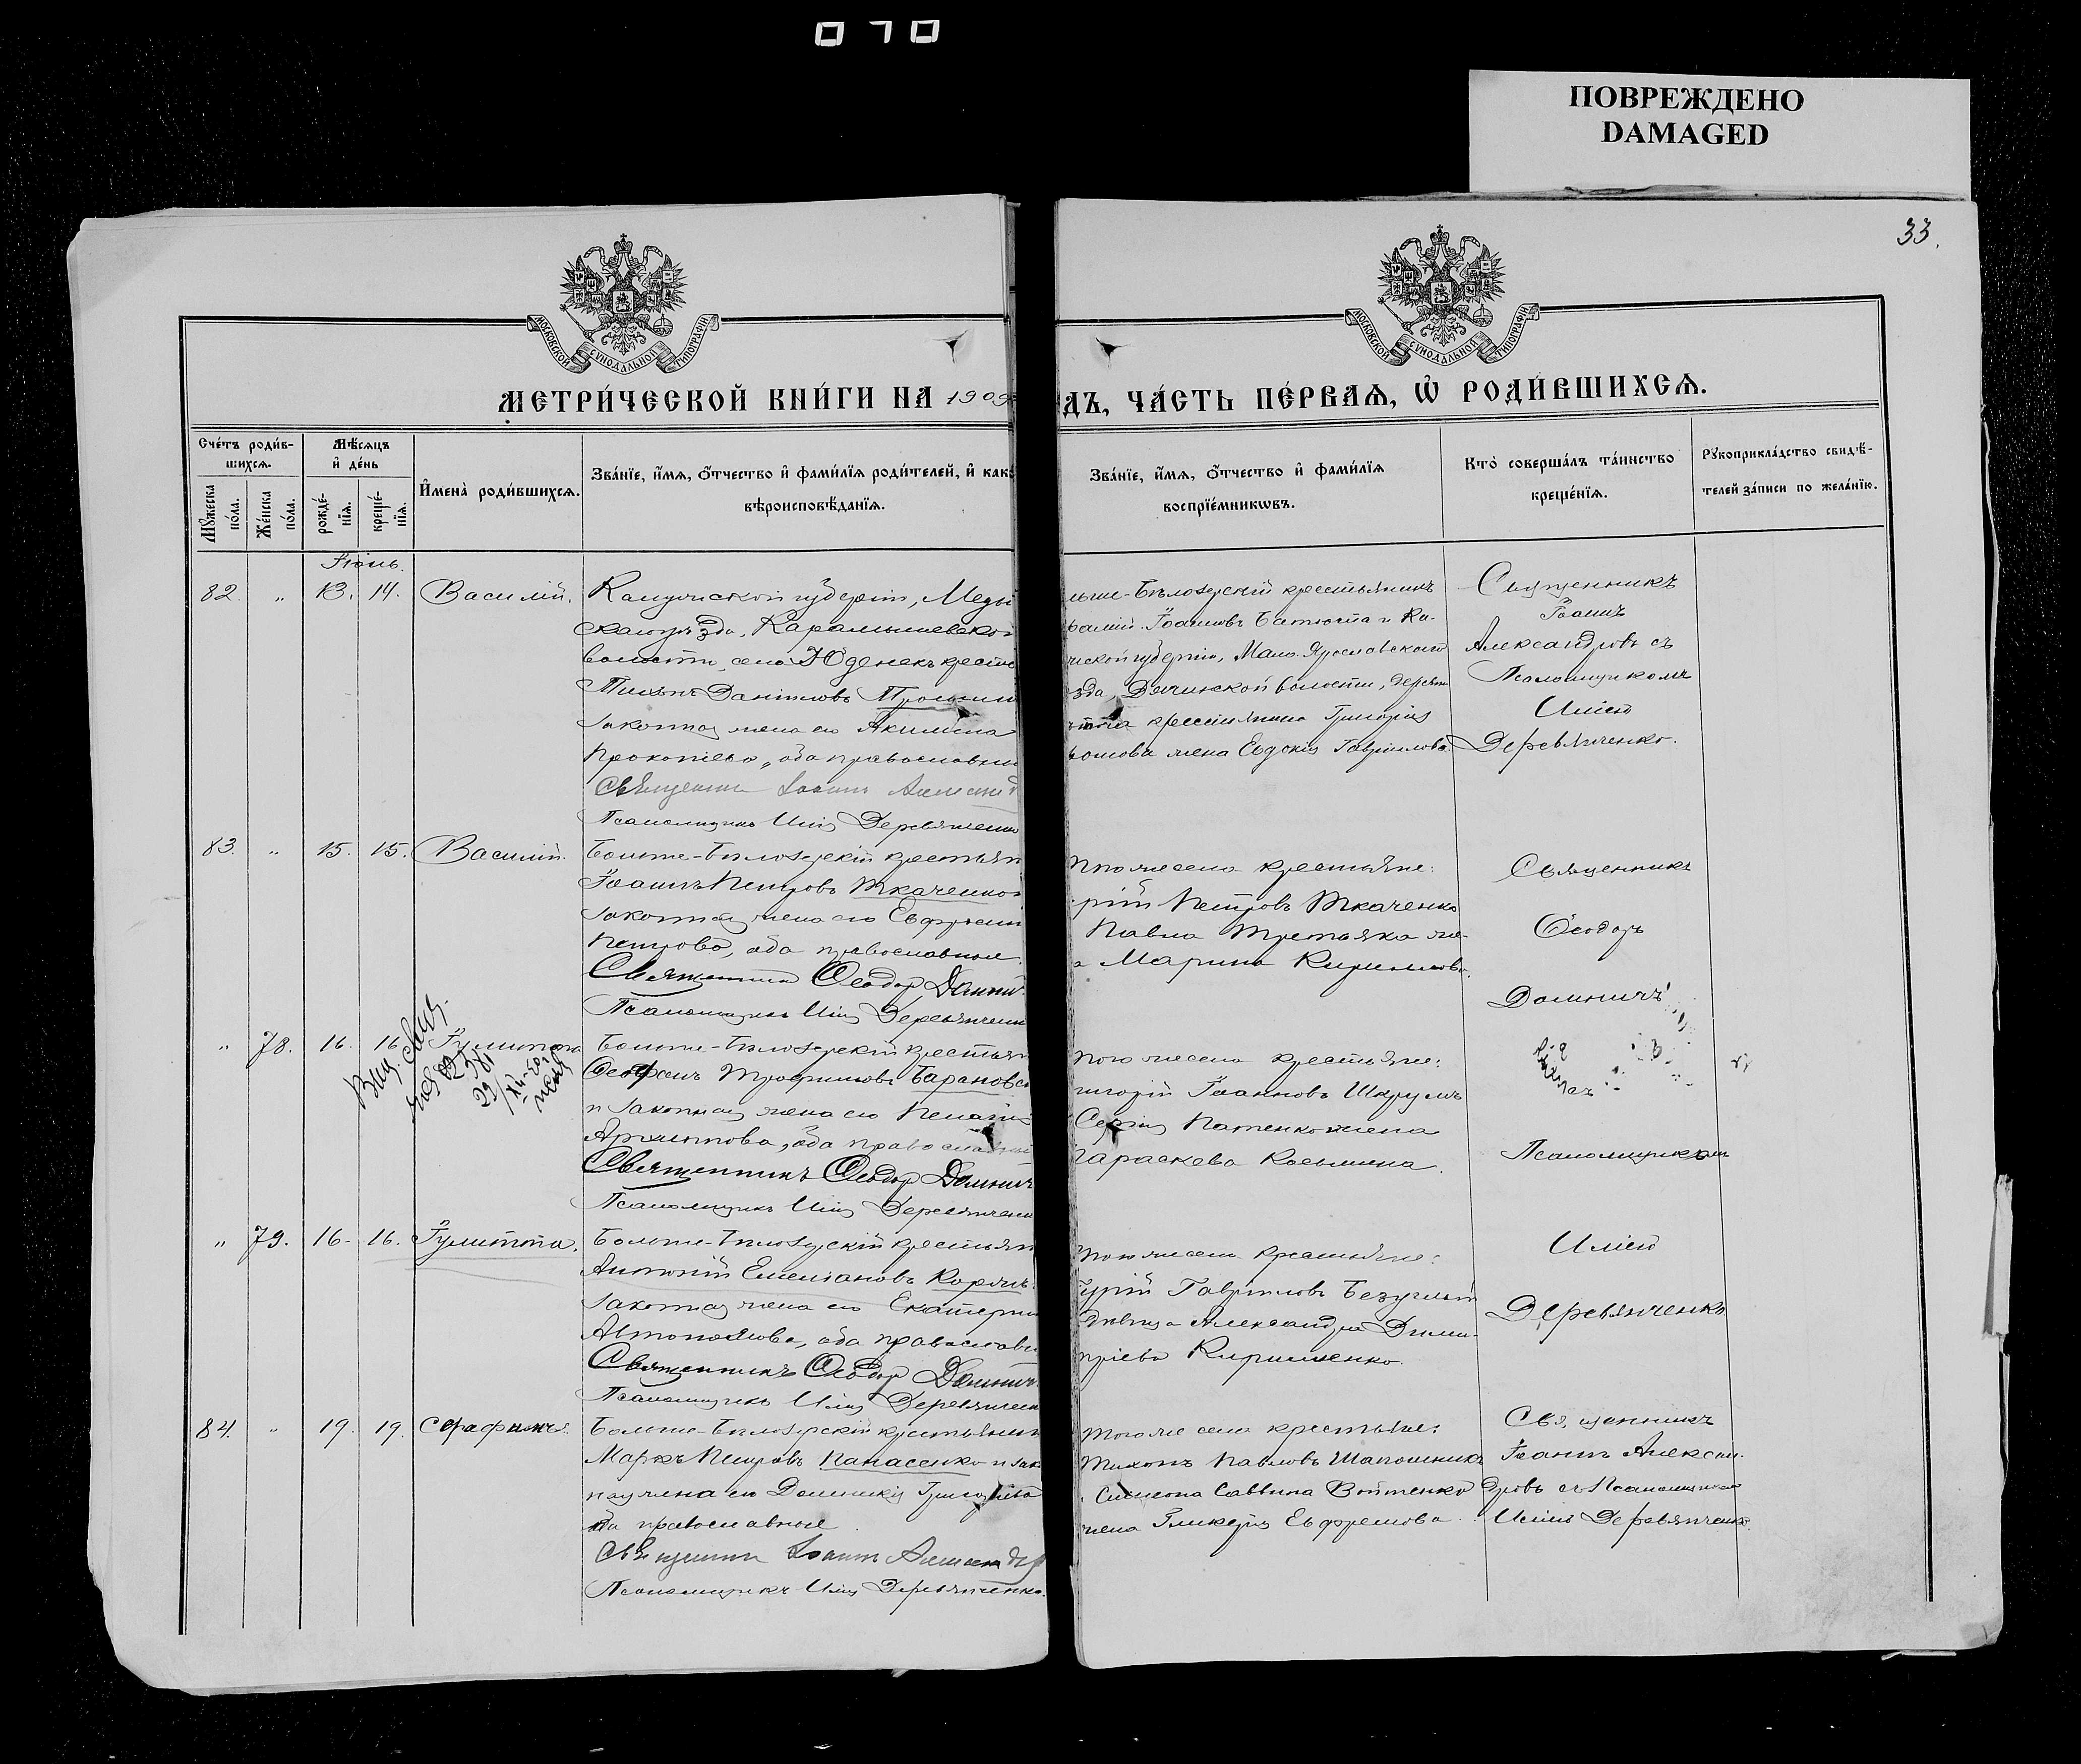 070
ПОВРЕЖДЕНО
DAMAGED
33.
МОСКОВСКОЙ СѴНОДАЛЬНОЙ ТИПОГРАФІИ
МОСКОВСКОЙ СѴНОДАЛЬНОЙ ТИПОГРАФІИ
МЕТРИ́ЧЕСКОЙ КНИ́ГИ НА 1909
ДЪ, ЧА́СТЬ ПЕ́РВАѦ, Ѿ РОДИ́ВШИХСѦ.
Сче́тъ роди́в-
шихсѧ.
Мꙋ́жеска по́ла.
Же́нска по́ла.
Мѣ́сѧцъ
и҆ де́нь
рожде́-
нїѧ.
креще́-
нїѧ.
И҆мена̀ роди́вшихсѧ.
Зва́нїе, и҆́мѧ, ѻ҆́тчество и҆ фами́лїѧ роди́телей, и҆ как
вѣроисповѣ́данїѧ.
Зва́нїе, и҆́мѧ, ѻ҆́тчество и҆ фами́лїѧ
воспрїе́мникѡвъ.
Кто̀ соверша́лъ та́инство
креще́нїѧ.
Рꙋкоприкла́дство свидѣ́-
телей за́писи по жела́нїю.
Іюнь.
82. " 13. 14. Василій.
Калужской губерніи, Меды
скаго уѣзда, Карамышевской
волости, села Юденекъ крестья
Данiиловъ
законная жена его Акилина
Прокопіева, оба православны
Священникъ Іоаннъ
Псаломщикъ Илія Деревянченко
льше-Бѣлозерскій крестьянинъ
Іоанновъ и Ка-
жской губерніи, Мало-Ярославскаго
ѣзда, волости, дерев
крестьянина Григорія
жена Евдокія Гаврилова.
Священникъ
Іоаннъ
Александровъ съ
Псаломщикомъ
Иліею
Деревянченко.
83. " 15. 15. Василій.
Больше-Бѣлозерскій крестьян
Іоаннъ Петровъ Ткаченко и
законная жена его Евфросин
Петрова, оба православные.
Священникъ Ѳеодор Домнич.
Псаломщикъ Илія Деревянченк
того же села крестьяне:
рій Петровъ Ткаченко
Павла Третьяка же-
а Марина Кириллова.
Священникъ
Ѳеодоръ
Домничъ
" 78. 16. 16. Іулитта
Выд. свид.
Больше-Бѣлозерскій крестьян
Трофимовъ Барановс
и законная жена его Пелагія
Архиппова, оба православные
Священникъ Ѳеодор Домнич
Псаломщикъ Илія Деревянченк
того же села крестьяне:
ригорій Іоанновъ Шкрумъ
Сергія жена
Параскева Косьмина.
Псаломщикомъ
" 79. 16. 16. Іулитта.
Больше-Бѣлозерскій крестьян
Антоній Емеліановъ
законная жена его Екатерин
Автономова, оба православн
Священникъ Ѳеодор Домнич.
Псаломщикъ Илія Деревянченк
того же села крестьяне:
Гурій Гавриловъ Безуглый
дѣвица Александра Дими-
тріева Кириленко.
Иліею
Деревянченко
84. " 19. 19. Серафимъ.
Больше-Бѣлозерскій крестьянин
Маркъ Петровъ Панасенко и зак
ная жена его Домникія Григорьева
оба православные.
Священникъ Іоаннъ Александр
Псаломщикъ Илія Деревянченко.
того же села крестьяне:
Тихонъ Павловъ Шапошникъ
Симеона Саввина Войтенко
жена Гликерія Ефремова.
Священникъ
Іоаннъ Алексан-
дровъ съ Псаломщикомъ
Иліею Деревянченко.